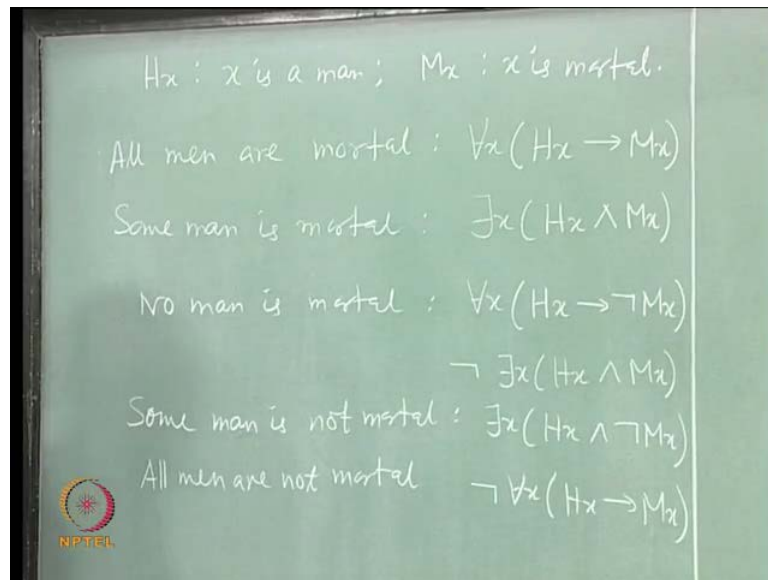 Hx : x is a man ; Mx : x is mortal.
All men are mortal : ∀x (Hx → Mx)
Some man is mortal : ∃x (Hx ∧ Mx)
No man is mortal : ∀x (Hx → ¬Mx)
¬ ∃x (Hx ∧ Mx)
Some man is not mortal : ∃x (Hx ∧ ¬Mx)
All men are not mortal ¬ ∀x (Hx → Mx)
NPTEL